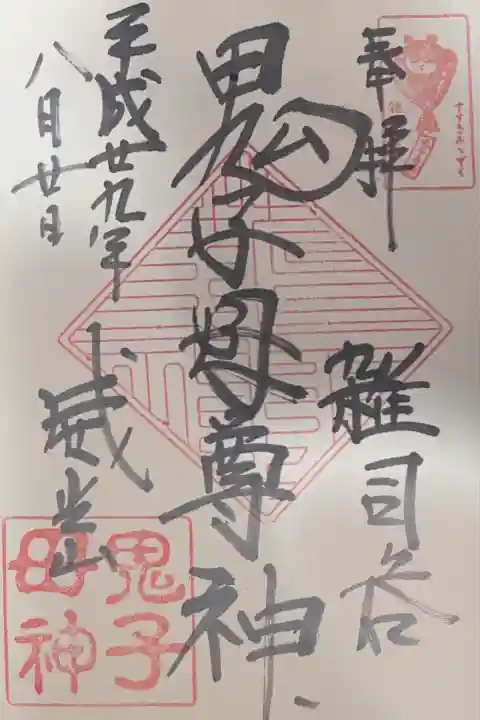 奉拝
雑司谷
鬼子母尊神
平成廿九年
八月廿日
威光山
鬼子
母神
すすきみみずく